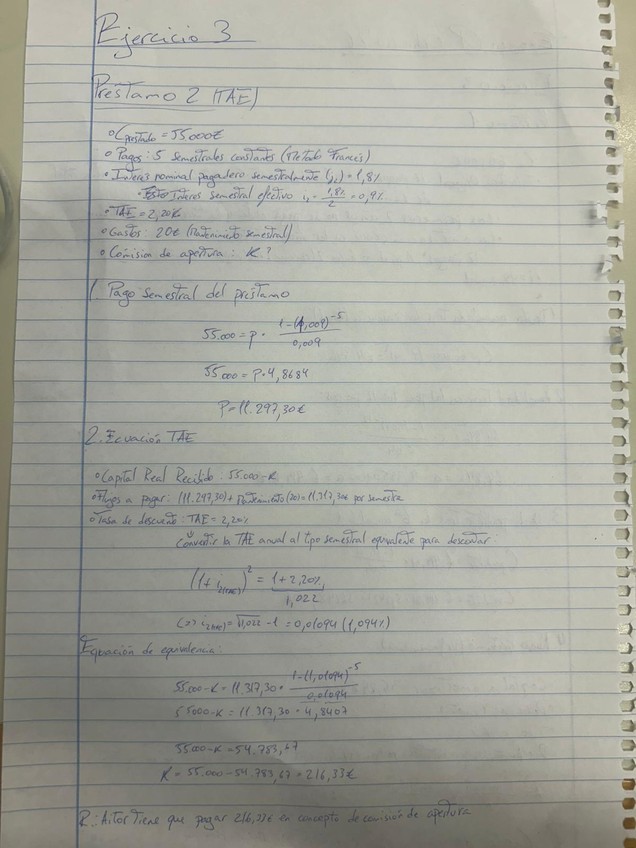 Ejercicio 3
Préstamo 2 (TAE)
• C prestado = 55.000€
• Pagos: 5 semestrales constantes (Método Francés)
• Interés nominal pagadero semestralmente (j₂) = 1,8%
• Interés semestral efectivo i₂ = 1,8%/2 = 0,9%
• TAE = 2,20%
• Gastos: 20€ (Mantenimiento semestral)
• Comisión de apertura: K?
1. Pago semestral del préstamo
55.000 = P · (1-(1,009)⁻⁵)/0,009
55.000 = P · 4,8684
P = 11.297,30€
2. Ecuación TAE
• Capital Real Recibido: 55.000-K
• Flujos a pagar: (11.297,30) + Mantenimiento (20) = 11.317,30€ por semestre
• Tasa de descuento: TAE = 2,20%
Convertir la TAE anual al tipo semestral equivalente para descontar:
(1+i₂(TAE))² = 1+2,20%
1,022
(=) i₂(TAE) = √1,022 - 1 = 0,01094 (1,094%)
Equación de equivalencia:
55.000-K = 11.317,30 · (1-(1,01094)⁻⁵)/0,01094
55000-K = 11.317,30 · 4,8407
55000-K = 54.783,67
K = 55.000-54.783,67 = 216,33€
R: Aitor tiene que pagar 216,33€ en concepto de comisión de apertura